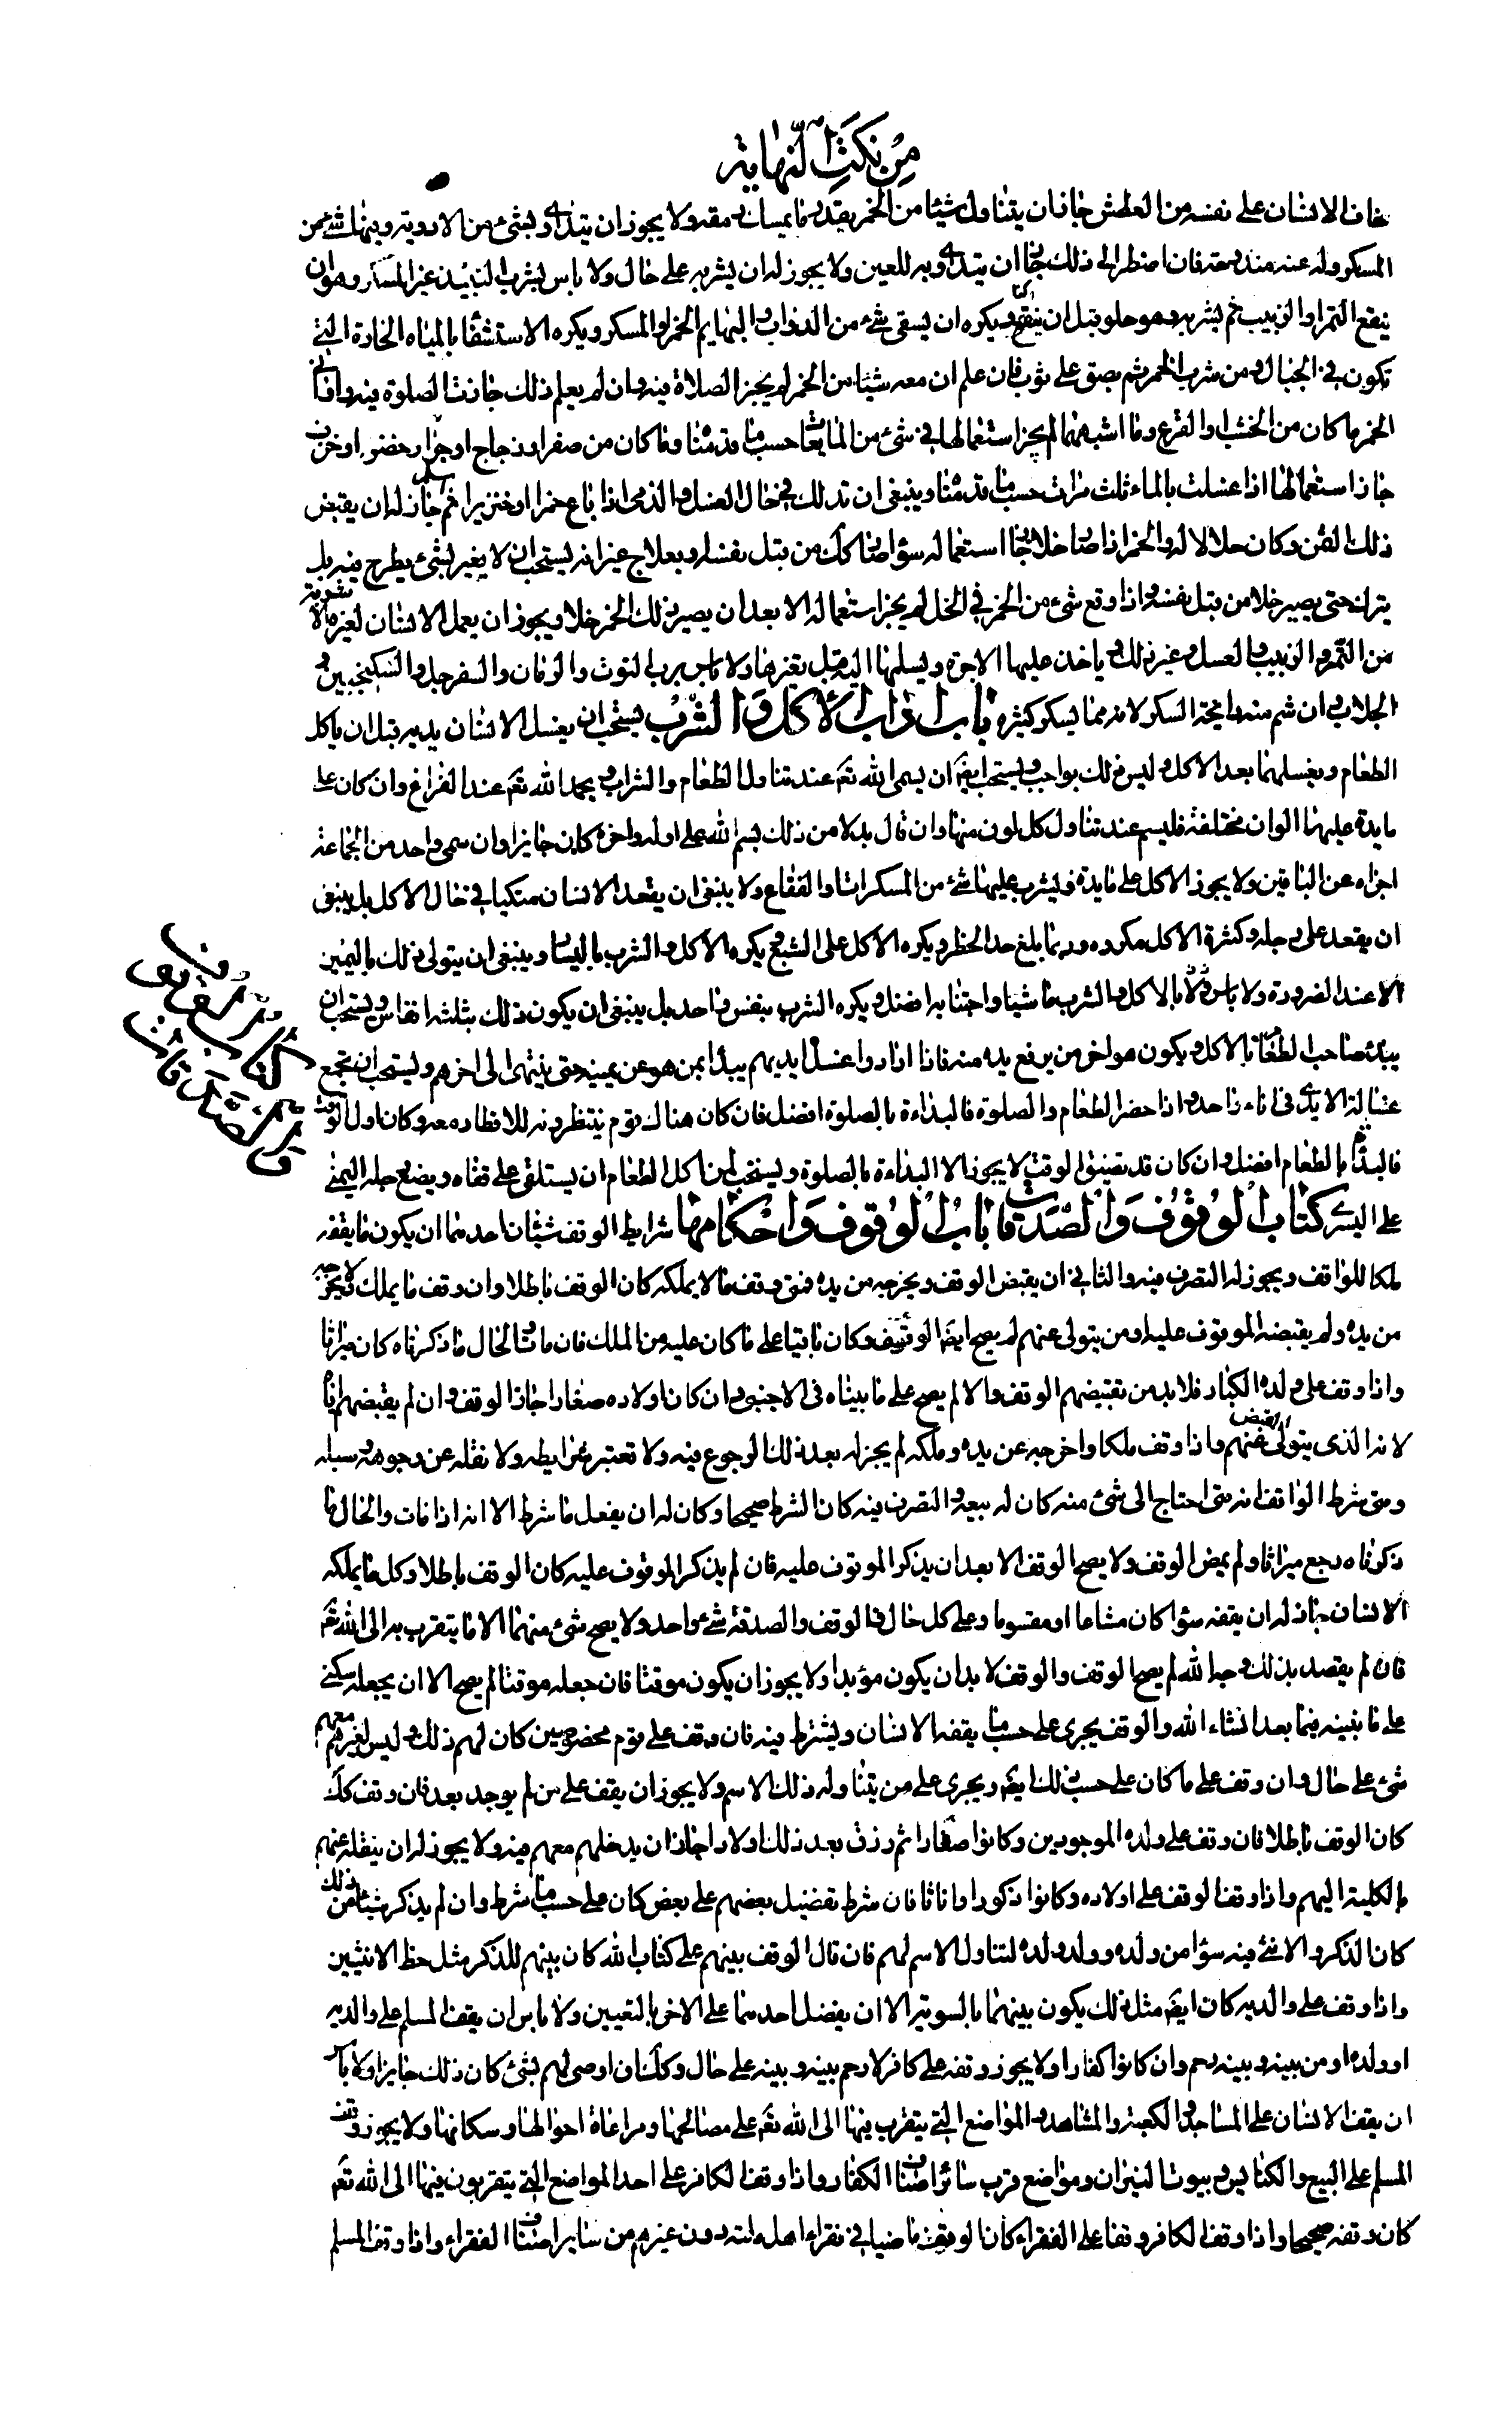 من نكت النهاية
خاف الانسان على نفسه من العطش جاز ان يتناول شيئا من الخمر بقدر ما يمسك رمقه ولا يجوز ان يتداوى بشئ من الادوية وفيها شئ من
المسكر وله عنه مندوحة فان اضطر الى ذلك جاز ان يتداوى به للعين ولا يجوز له ان يشربه على حال ولا باس بشرب النبيذ غير المسكر وهو ان
ينقع التمر او الزبيب ثم يشربه وهو حلو قبل ان يتغير ويكره ان يسقى شئ من الدواب والبهايم الخمر او المسكر ويكره الاستشفا بالمياه الحارة التي
تكون في الجبال ومن شرب الخمر ثم بصق على ثوب فان علم ان معه شيئا من الخمر لم يجز الصلاة فيه وان لم يعلم ذلك جازت الصلوة فيه واواني
الخمر ما كان من الخشب او القرع وما اشبههما لم يجز استعمالها في شئ من المايعات حسب ما قدمنا وما كان من صفر او زجاج او جرار خضر او خزف
جاز استعمالها اذا غسلت بالماء ثلث مرات حسب ما قدمنا وينبغي ان تدلك في حال الغسل والذمى اذا باع خمرا او خنزيرا ثم اسلم جاز له ان يقبض
ذلك الثمن وكان حلالا له والخمر اذا صار خلا جاز استعماله سواء صار كك من قبل نفسه او بعلاج غير انه يستحب ان لا يغير بشئ يطرح فيه بل
يترك حتى يصير خلا من قبل نفسه واذا وقع شئ من الخمر في الخل لم يجز استعماله الا بعد ان يصير ذلك الخمر خلا ويجوز ان يعمل الانسان لغيره الاشربة
من التمر والزبيب والعسل وغير ذلك وياخذ عليها الاجرة ويسلمها اليه قبل تغيرها ولا باس برب التوت والرمان والسفرجل والسكنجبين و
الجلاب وان شم منه رايحة السكر لانه مما لا يسكر كثيره باب اداب الاكل والشرب يستحب ان يغسل الانسان يديه قبل ان ياكل
الطعام ويغسلهما بعد الاكل وليس ذلك بواجب ويستحب ايضا ان يسمى الله تع عند تناول الطعام والشراب ويحمد الله تع عند الفراغ وان كان على
مايدة عليها الوان مختلفة فليسم عند تناول كل لون منها وان قال بدلا من ذلك بسم الله على اوله واخره كان جايزا وان سمى واحد من الجماعة
اجزاء عن الباقين ولا يجوز الاكل على مايدة يشرب عليها شئ من المسكرات او الفقاع ولا ينبغي ان يقعد الانسان متكيا في حال الاكل بل ينبغي
ان يقعد على رجله وكثرة الاكل مكروه وربما بلغ حد الحظر ويكره الاكل على الشبع ويكره الاكل والشرب باليسار وينبغي ان يتولى ذلك باليمين
الا عند الضرورة ولا باس بالاكل والشرب ماشيا واجتنابه افضل ويكره الشرب بنفس واحد بل ينبغي ان يكون ذلك بثلثة انفاس ويستحب ان
يبدء صاحب الطعام بالاكل ويكون هو اخر من يرفع يده منه فاذا ارادوا غسل ايديهم يبدأ بمن هو عن يمينه حتى ينتهى الى اخرهم ويستحب ان تجمع
غسالة الايدى في اناء واحد واذا حضر الطعام والصلوة فالبداءة بالصلوة افضل فان كان هناك قوم ينتظرونه للافطار معه وكان اول الوقت
فالبدأة بالطعام افضل وان كان قد تضيق الوقت لا يجوز الا البداءة بالصلوة ويستحب لمن اكل الطعام ان يستلقى على قفاه ويضع رجله اليمنى
على اليسرى كتاب الوقوف والصدقات باب الوقوف واحكامها شرايط الوقف شيئان احدهما ان يكون ما يقفه
ملكا للواقف ويجوز له التصرف فيه والثاني ان يقبض الوقف ويخرجه من يده فمتى وقف ما لا يملكه كان الوقف باطلا وان وقف ما يملك ولم يخرجه
من يده ولم يقبضه الموقوف عليه او من يتولى عنهم لم يصح ايضا الوقف وكان باقيا على ما كان عليه من الملك فان مات والحال ما ذكرناه كان ميراثا
واذا وقف على ولده الكبار فلابد من تقبيضهم الوقف والا لم يصح على ما بيناه في الاجنبي وان كان اولاده صغارا جاز الوقف وان لم يقبضهم اياه
لانه الذى يتولى القبض عنهم واذا وقف ملكا واخرجه عن يده وملكه لم يجز له بعد ذلك الرجوع فيه ولا تغيير شرايطه ولا نقله عن وجوهه وسبله
ومتى شرط الواقف انه متى احتاج الى شئ منه كان له بيعه والتصرف فيه كان الشرط صحيحا وكان له ان يفعل ما شرط الا انه اذا مات والحال ما
ذكرناه رجع ميراثا ولم يمض الوقف ولا يصح الوقف الا بعد ان يذكر الموقوف عليه فان لم يذكر الموقوف عليه كان الوقف باطلا وكل ما يملكه
الانسان جاز له ان يقفه سواء كان مشاعا او مقسوما وعلى كل حال فالوقف والصدقة شئ واحد ولا يصح شئ منهما الا ما يتقرب به الى الله تع
فان لم يقصد بذلك وجه الله لم يصح الوقف والوقف لا بد ان يكون مؤبدا ولا يجوز ان يكون موقتا فان جعله موقتا لم يصح الا ان يجعله سكنى
على ما نبينه فيما بعد انشاء الله والوقف يجرى على حسب ما يقفه الانسان ويشترط فيه فان وقف على قوم مخصوصين كان لهم ذلك وليس لغيرهم معهم
شئ على حال وان وقف على ما كان على حسب ذلك ايضا ويجرى على من يتناوله ذلك الاسم ولا يجوز ان يقف على من لم يوجد بعد فان وقف كك
كان الوقف باطلا فان وقف على ولده الموجودين وكانوا صغارا ثم رزق بعد ذلك اولادا جاز ان يدخلهم معهم فيه ولا يجوز له ان ينقله عنهم
بالكلية اليهم واذا وقف الوقف على اولاده وكانوا ذكورا واناثا فان شرط تفضيل بعضهم على بعض كان على حسب ما شرط وان لم يذكر شيئا من ذلك
كان الذكر والانثى فيه سواء من ولده وولد ولده لتناول الاسم لهم فان قال الوقف بينهم على كتاب الله كان بينهم للذكر مثل حظ الانثيين
واذا وقف على والديه كان ايضا مثل ذلك يكون بينهما بالسوية الا ان يفضل احدهما على الاخر بالتعيين ولا باس ان يقف المسلم على والديه
او ولده او من بينه وبينه رحم وان كانوا كفارا ولا يجوز وقفه على كافر لا رحم بينه وبينه على حال وكك ان اوصى لهم بشئ كان ذلك جايزا ولا باس
ان يقف الانسان على المساجد والكعبة والمشاهد والمواضع التي يتقرب فيها الى الله تع على مصالحها ومراعاة احوالها وسكانها ولا يجوز وقف
المسلم على البيع والكنايس وبيوت النيران ومواضع قرب سائر اصناف الكفار واذا وقف الكافر على احد المواضع التي يتقربون فيها الى الله تع
كان وقفه صحيحا واذا وقف الكافر وقفا على الفقراء كان الوقف ماضيا في فقراء اهل ملته دون غيرهم من ساير اصناف الفقراء واذا وقف المسلم
كتاب الوقوف
والصدقات